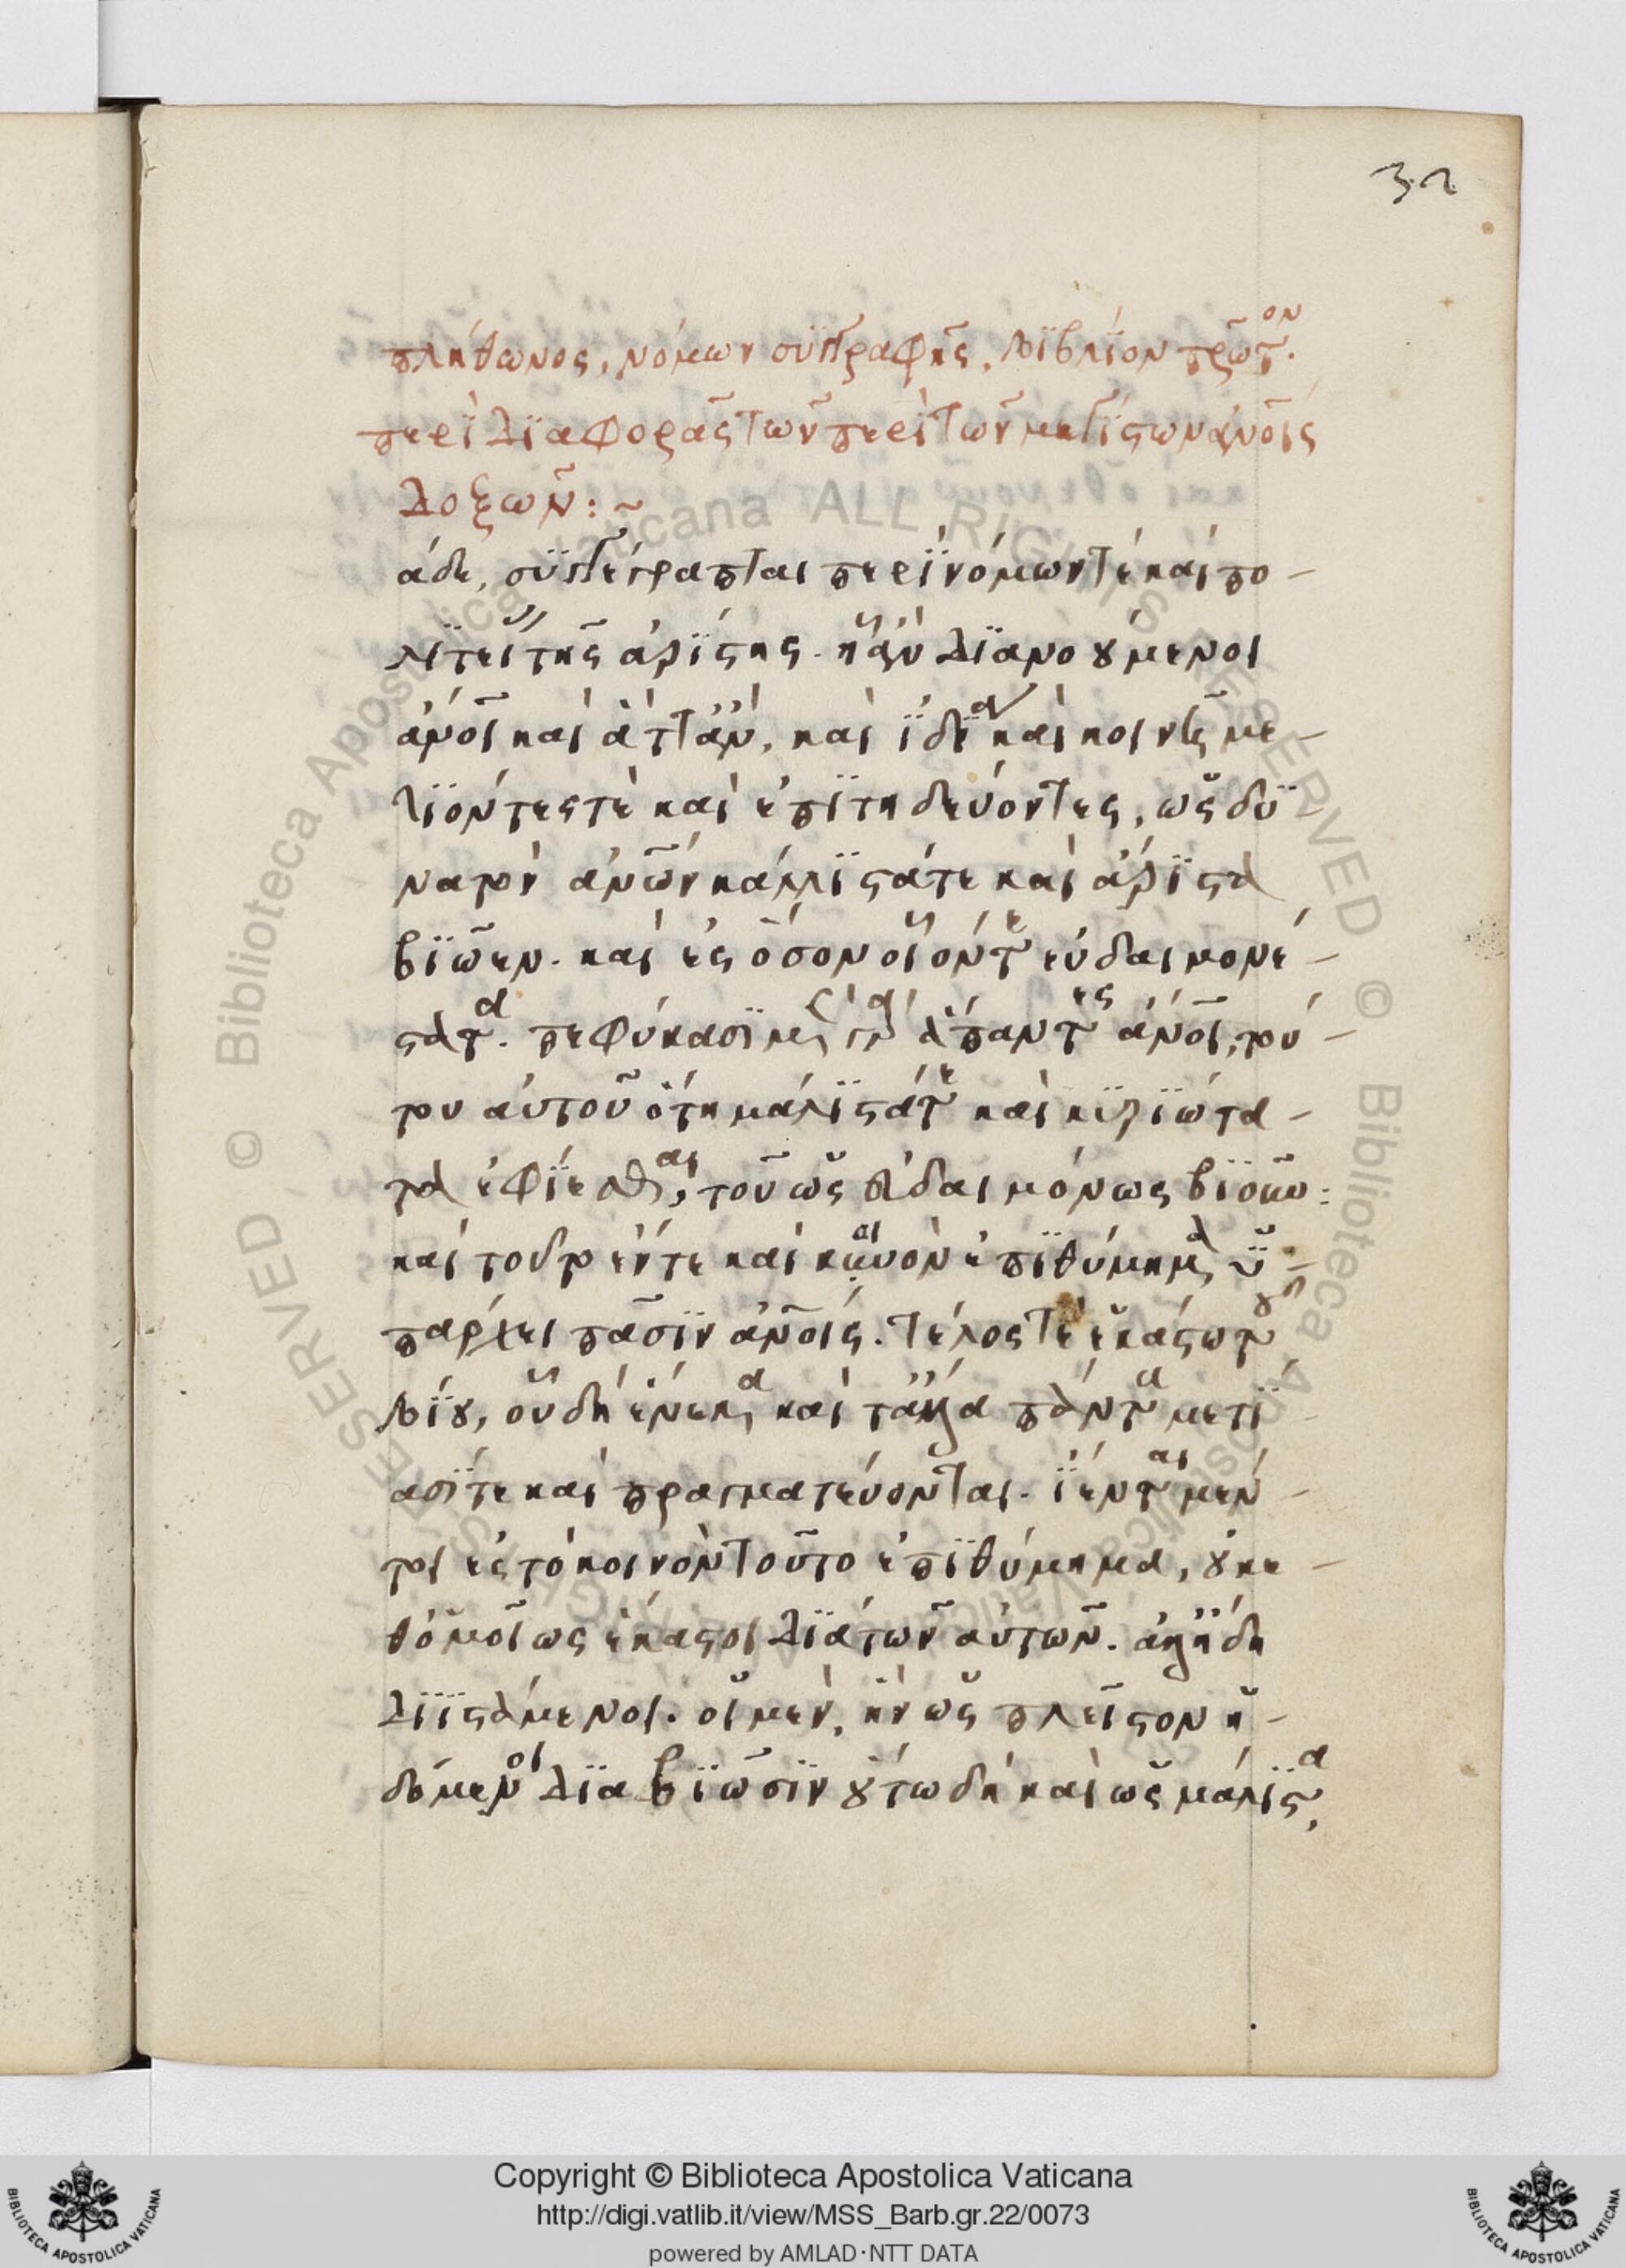 32
πλήθωνος, νόμων συγγραφῆς, βιβλίον πρῶτον.
περὶ διαφορᾶς τῶν περὶ τῶν μεγίστων ἀνοῖς
δοξῶν:~
άδε, συγγέγραπται περὶ νόμων τὲ καὶ πο-
λιτείας τῆς ἀρίστης. ἧ ἂν διανοούμενοι
ἄνοι καὶ ἅττ' ἂν, καὶ ἰδίᾳ καὶ κοινῇ με-
τιόντες τὲ καὶ ἐπιτηδεύοντες, ὡς δυ-
νατὸν ἀνῶν κάλλιστά τε καὶ ἄριστα
βιῷεν. καὶ ἐς ὅσον οἷόν τε εὐδαιμονέ-
στατα. πεφύκασι μὲν γὰρ ἅπαντες ἄνοι, τού-
του αὐτοῦ ὅτι μάλιστά τε καὶ κυριώτα-
τα ἐφίεσθαι, τοῦ ὡς εὐδαιμόνως βιοῦν:
καὶ τοῦτο ἕν τε καὶ κοινὸν ἐπιθύμημα ὑ-
πάρχει πᾶσιν ἀνοῖς. τέλος τὲ ἑκάστῳ τοῦ
βίου, οὗ δὴ ἕνεκα καὶ τἄλλα πάντα μετί-
ασί τε καὶ πραγματεύονται. ἵενται μέν-
τοι ἐς τὸ κοινὸν τοῦτο ἐπιθύμημα, οὐκέ
θ' ὁμοίως ἕκαστοι διὰ τῶν αὐτῶν. ἀλλ' ἤδη
διϊστάμενοι. οἱ μὲν, ἢν ὡς πλεῖστον ἡ-
δόμενοι διαβιῶσιν οὕτω δὴ καὶ ὡς μάλιστα,
Copyright © Biblioteca Apostolica Vaticana
http://digi.vatlib.it/view/MSS_Barb.gr.22/0073
powered by AMLAD·NTT DATA